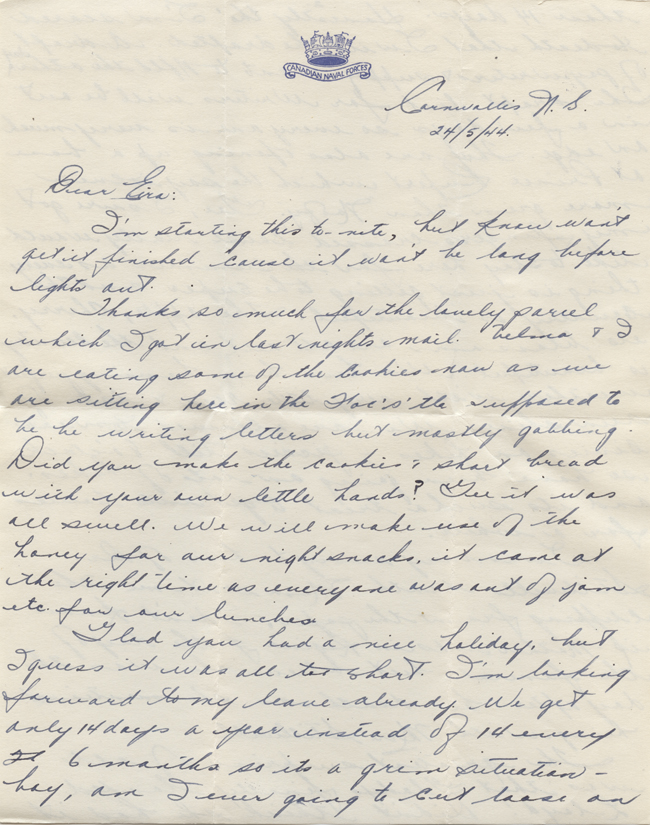 CANADIAN NAVAL FORCES
Cornwallis N.S.
24/5/44.
Dear Eira:
I'm starting this to-nite, but know won't
get it finished 'cause it won't be long before
lights out.
Thanks so much for the lovely parcel
which I got in last nights mail. Velma & I
are eating some of the cookies now as we
are sitting here in the Foc's'tle supposed to
be be writing letters but mostly gabbing.
Did you make the cookies & short bread
with your own little hands? Gee it was
all swell. We will make use of the
honey for our night snacks, it came at
the right time as everyone was out of jam
etc. for our lunches.
Glad you had a nice holiday, but
I guess it was all too short. I'm looking
forward to my leave already. We get
only 14 days a year instead of 14 every
6 months so its a grim situation -
boy, am I ever going to cut loose on